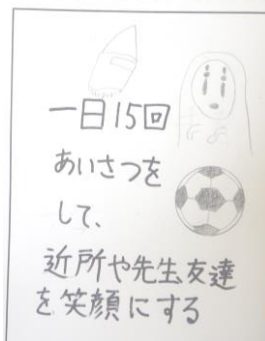 一日15回
あいさつを
して、
近所や先生、友達
を笑顔にする